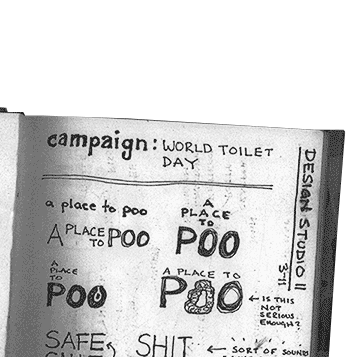 campaign: WORLD TOILET
DAY
DESIGN STUDIO II
3-11
a place to poo
A PLACE TO POO
A
PLACE
TO
POO
A
PLACE
TO
POO
A PLACE TO
POO
← IS THIS
NOT
SERIOUS
ENOUGH?
SAFE
SHIT
← SORT OF SOUNDS